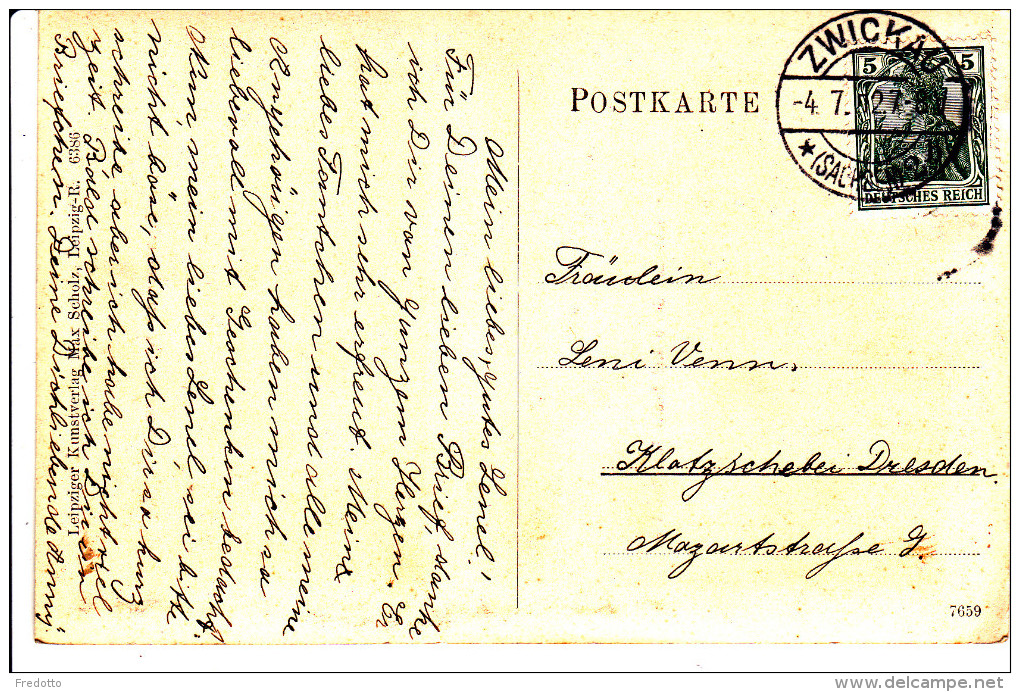 Mein liebes, gutes Lenel!
Für Deinen lieben Brief, danke
ich Dir von ganzem Herzen. Er
hat mich sehr erfreut. Meine
liebes Tantchen und alle meine
Angehörigen haben mich so
liebevoll mit Geschenken bedacht.
Nun mein liebes Lenel sei bitte
nicht böse, dass ich Dir so kurz
schreibe aber ich habe nicht viel
Zeit. Bald schreibe ich Dir ein
Briefchen. Deine Dich liebende Anny.
Leipziger Kunstverlag Max Scholz, Leipzig-R. 6386
POSTKARTE
ZWICKAU
-4. 7.
(SACHS.)
5 5
DEUTSCHES REICH
Fräulein
Leni Venn,
Klotzsche bei Dresden.
Mozartstraße 9.
7659
Fredotto
delcampe.net